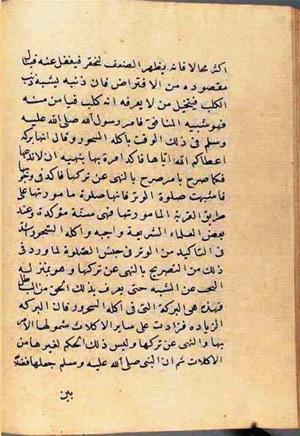 اكثر محالا فانه يظهر الضعف لتحقر فيغفل عنه فينال
مقصوده من الافتراض فان ذنبه يشبه ذنب
الكلب فيتخيل من لا يعرفه انه كلب فيامن منه
فهو شبيه المنافق فامر رسول الله صلى الله عليه
وسلم في ذلك الوقت باكله السحور وقال انها بركة
اعطاكم الله اياها فاكد امره بها بنهيه ان لا ندعها
فكما صرح بامر صرح بالنهى عن تركها فاكد في وجوبها
فاشبهت صلوة الوتر فانها صلوة مامور بها على
طريق القربة المامور بها فهى سنة مؤكدة وعند
بعض العلماء الشريعة واجبة واكله السحور اشد
في التاكيد من الوتر في جنس الصلوة لما ورد في
ذلك من التصريح بالنهى عن تركها وهو بمنزلة
البحث عن الشبه حتى يعرف بذلك الحق من الباطل
فهذه هى البركة التى في اكله السحور فان البركة
الزيادة فزادت على ساير الاكلات شمولها الامر
بها والنهى عن تركها وليس ذلك الحكم لغيرها من
الاكلات ثم ان النبى صلى الله عليه وسلم جعلها فصلا
بين